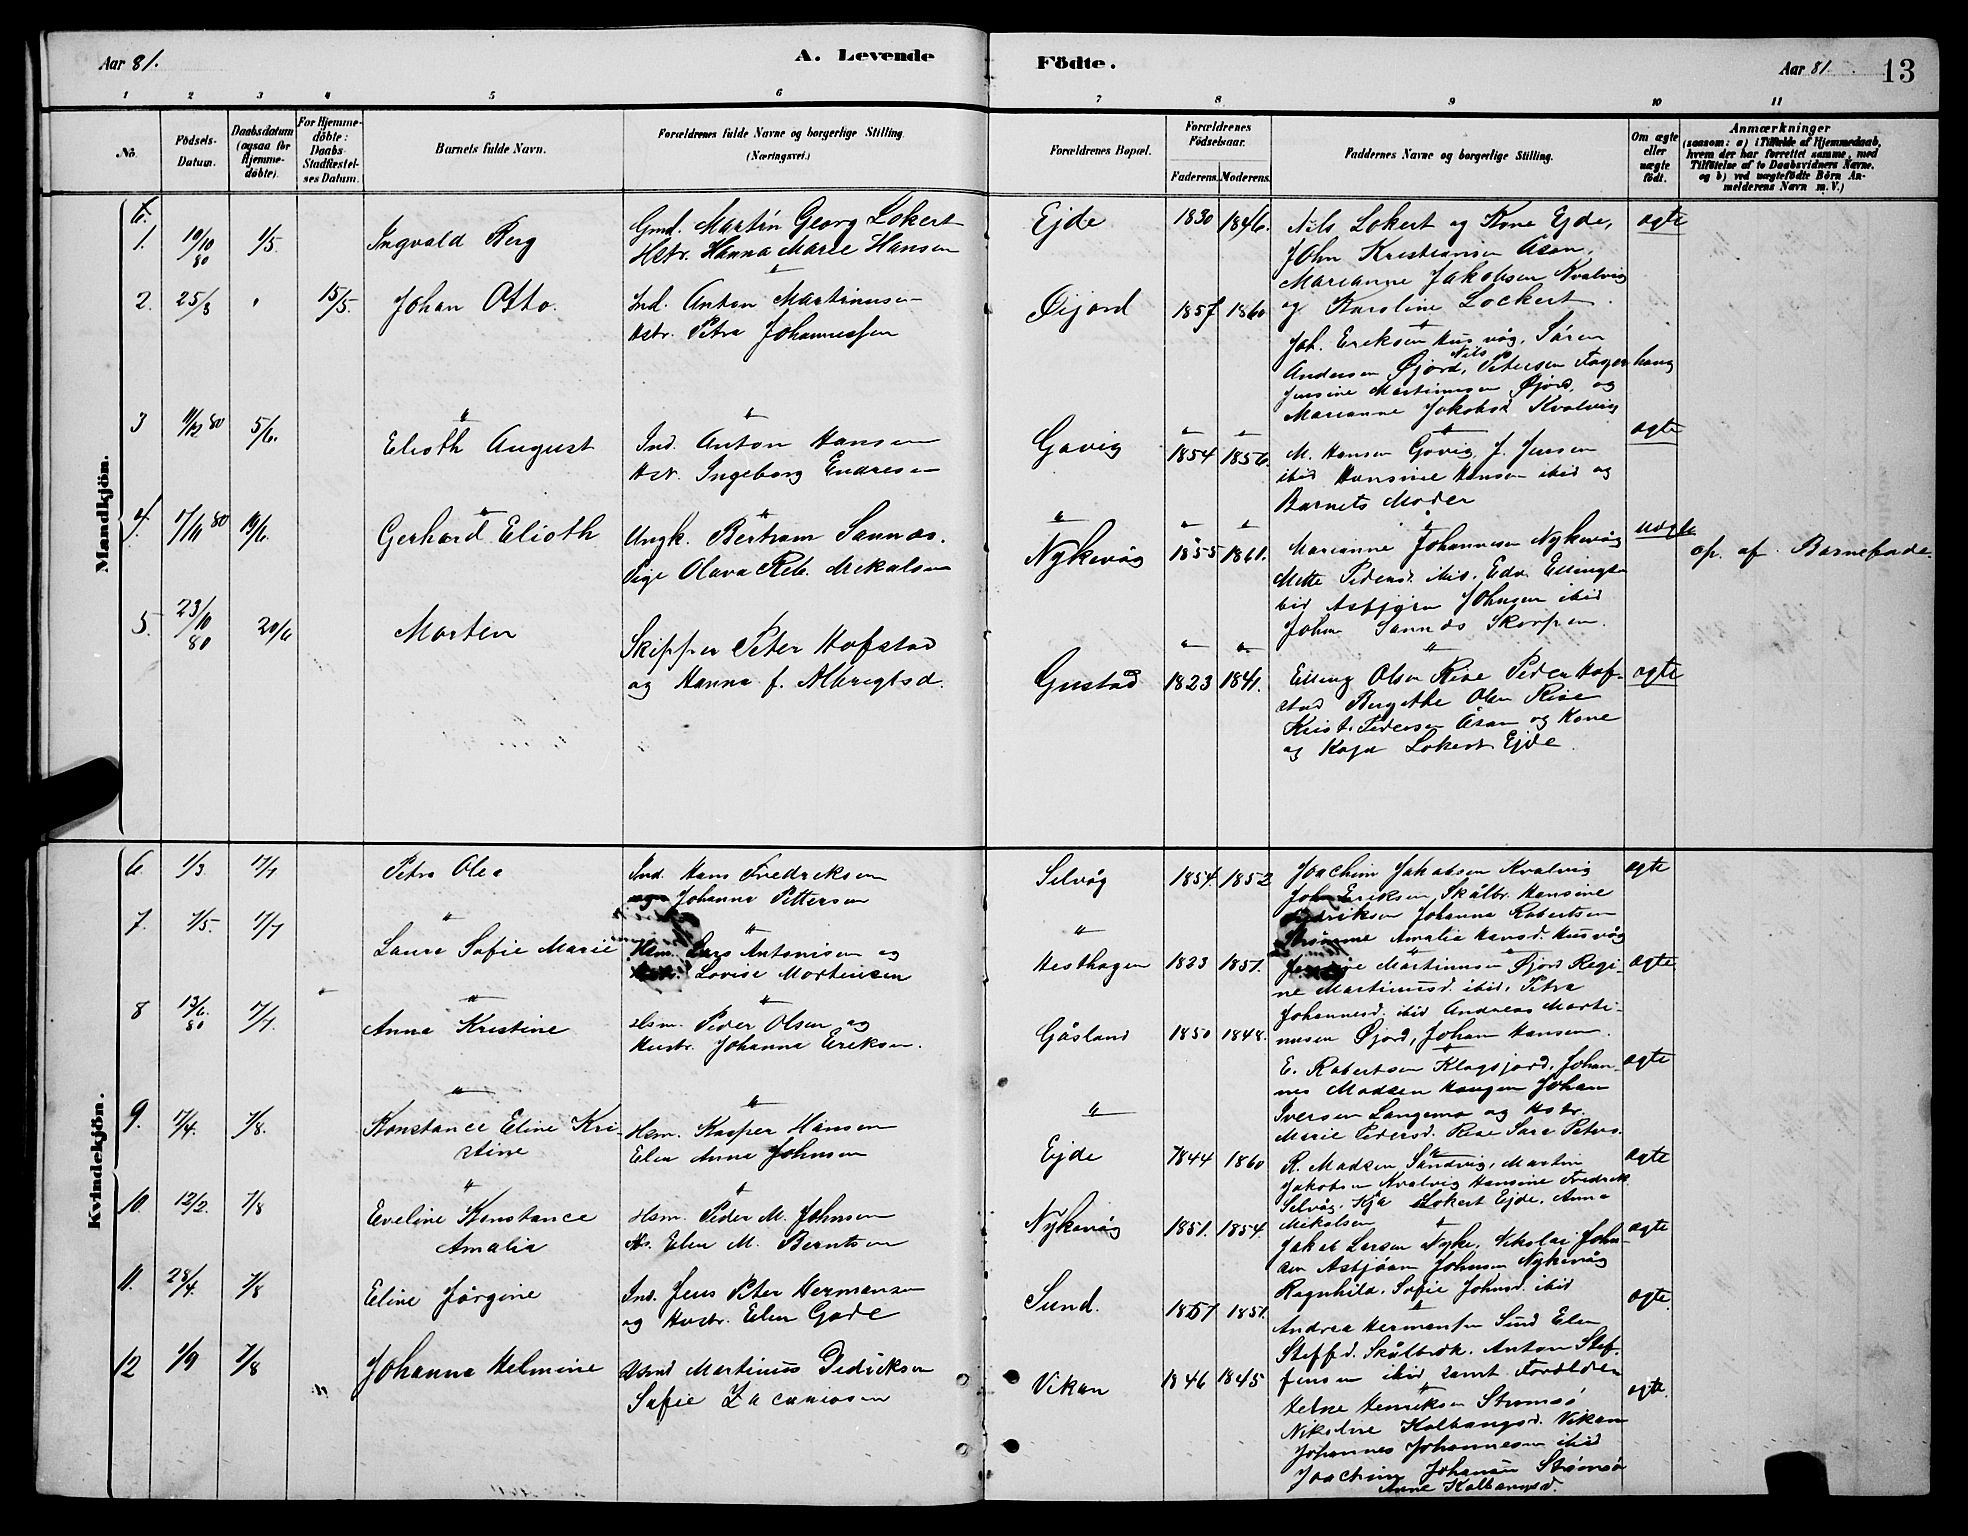 Aar 81. A. Levende Födte. Aar 81. 13
1 2 3 4 5 6 7 8 9 10 11
No. Födsels-Datum. Daabsdatum (ogsaa for Hjemme-döbte). For Hjemme-döbte: Daabs-Stadfæstel-ses Datum. Barnets fulde Navn. Forældrenes fulde Navne og borgerlige Stilling. (Næringsvei.) Forældrenes Bopæl. Forældrenes Födselsaar. Faderens. Moderens. Faddernes Navne og borgerlige Stilling. Om ægte eller uægte födt. Anmærkninger (saasom: a) i Tilfælde af Hjemmedaab, hvem der har forrettet samme, med Tilföielse af to Daabsvidners Navne. og b) ved uægtefödte Börn An-melderens Navn m. V.)
Mandkjön.
1. 10/10 80 1/5. Ingvald Berg
Gmd. Martin Georg Lokert
Hstr. Hanna Marie Hansen
Ejde 1830 1846.
Nils Lokert og Kone Ejde,
John Kristiansen Åsan,
Marianne Jakobsen Kvalvig
og Karoline Lockert.
ægte
2. 25/3 " 15/5. Johan Otto.
Ind. Anton Martinusen
Hstr. Petra Johannessen
Öijord 1857 1860
Joh. Eriksen Husvåg, Sören
Andersen Øjord, Nils Petersen Fager haug
Jensine Martinusen Øjord, og
Marianne Jakobsd Kvalvig
ægte
3 11/12 80 5/6. Elioth August
Ind. Anton Hansen
Hstr. Ingeborg Endresen
Govig 1854 1856.
M. Hansen Govig, J. Jensen
ibid Hansine Hansen ibid og
Barnets Moder
4. 17/11 80 19/6. Gerhard Elioth
Ungk. Bertram Sannæs.
Pige Olava Reb. Mikalsen
Nykvåg 1855 1861.
Marianne Johannesen Nykvåg
Mette Pedersd. ibid, Edv. Ellingsen
bid Asbjörn Johnsen ibid
Johan Sannæs Skorpen.
uægte
op. af Barnefade.
5. 23/10 80 20/6 Morten
Skipper Peter Hofstad
og Hanna f. Albrigtsd.
Gustad 1823 1841.
Elling Olsen Rise Peder Hof-
stad Bergitthe Olsen Rise
Krist. Pedersen Åsan og Kone
og Kaja Lokert Ejde.
ægte
Kvindekjön.
6. 1/3 17/7 Petra Olea
Ind. Hans Fredriksen
Johanna Pettersen
Selvåg 1854. 1852
Joachim Jakobsen Kvalvig
John Eriksen, Skålbr. Hansine
Fredriksen Johanna Robertsen
Strömme Amalia Hansd. Husvåg
ægte
7. 1/5. 17/7 Laura Sofie Marie
Hsm. Lars Antonisen og
Lovise Mortensen
Hesthagen 1823 1851.
Jensine Martinusen Øjord Regi-
ne Martinusd. ibid, Petra
Johannesd. ibid Andreas Marti-
nusen Øjord, Johan Hansen.
ægte
8 13/6. 80 17/7 Anna Kristine
Hsm. Peder Olsen og
Hustr. Johanna Eriksen.
Gåsland 1850 1848.
E. Robertsen Klagsjord, Johan-
nes Madsen Haugen Johan
Iversen Langemo og Hstr.
Marie Pedersd. Rise Sara Peters.
ægte
9. 17/4. 7/8. Konstance Eline Kri-
stine
Hsm. Kasper Hansen
Elen Anna Johnsen
Ejde 1844 1860
R. Madsen Sandvig, Martin
Jakobsen Kvalvig Hansine Fredrik.
Selvåg, Kja Lokert Ejde, Anna
Mikalsen
ægte
10. 12/2. 7/8 Eveline Konstance
Amalia
Hsm. Peder M. Johnsen
Hs. Elen M. Berntsen
Nykvåg 1851. 1854.
Jakob Larsen Nyke, Nikolai John-
sen Asbjörn Johnsen Nykvåg
Ragnhild. Sofie Johnsd. ibid
ægte
11. 28/4. 7/8 Eline Jörgine
Ind. Jens Peter Hermansen
og Hustr. Elen Gade
Sund. 1857 1851.
Andrea Hermansen Sund Elen
Steffd. Skålbrek. Anton Stef-
fensen ibid samt Foreldren
ægte.
12 1/9 7/8 Johanna Helmine
Martinus Didriksen
Sofie Zacariasen
Vikan 1846 1845
Helne Henriksen Strömsö
Nikoline Kolbangsd. Vikan
Johannes Johannesen ibid
Joachim Johansen Strömsö
Anne Kolbangsd.
ægte.